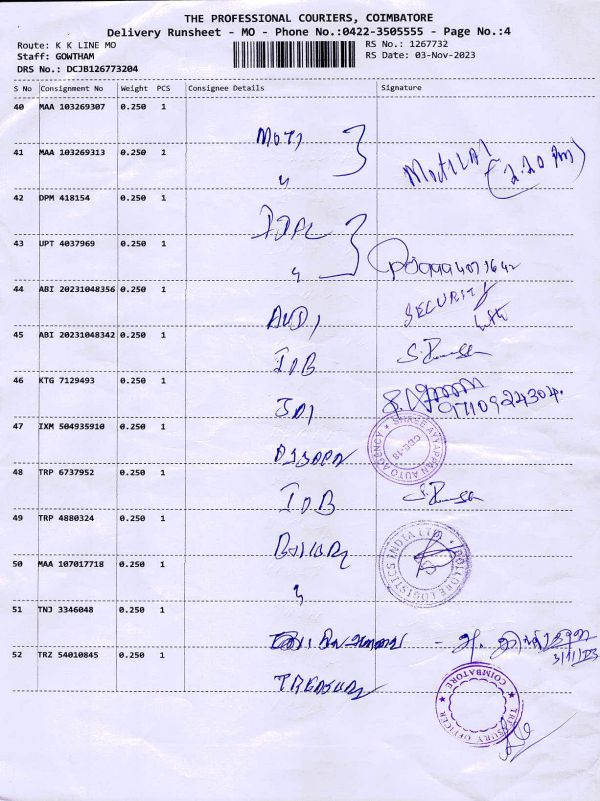 THE PROFESSIONAL COURIERS, COIMBATORE
Delivery Runsheet - MO - Phone No.:0422-3505555 - Page No.:4
Route: K K LINE MO
RS No.: 1267732
Staff: GOWTHAM
RS Date: 03-Nov-2023
DRS No.: DCJB126773204
S No Consignment No Weight PCS Consignee Details Signature
40 MAA 103269307 0.250 1
41 MAA 103269313 0.250 1
(2.20 PM)
42 DPM 418154 0.250 1
43 UPT 4037969 0.250 1
44 ABI 20231048356 0.250 1
SECURITY
45 ABI 20231048342 0.250 1
IOB
46 KTG 7129493 0.250 1
9710924304.
47 IXM 504935910 0.250 1
SHREE AYYAPPAN AUTO AGENCY
CBE-18
48 TRP 6737952 0.250 1
IOB
49 TRP 4880324 0.250 1
BOLLORE LOGISTICS INDIA LTD.
50 MAA 107017718 0.250 1
51 TNJ 3346048 0.250 1
3/11/23
52 TRZ 54010845 0.250 1
TREASURY
TREASURY OFFICER
COIMBATORE